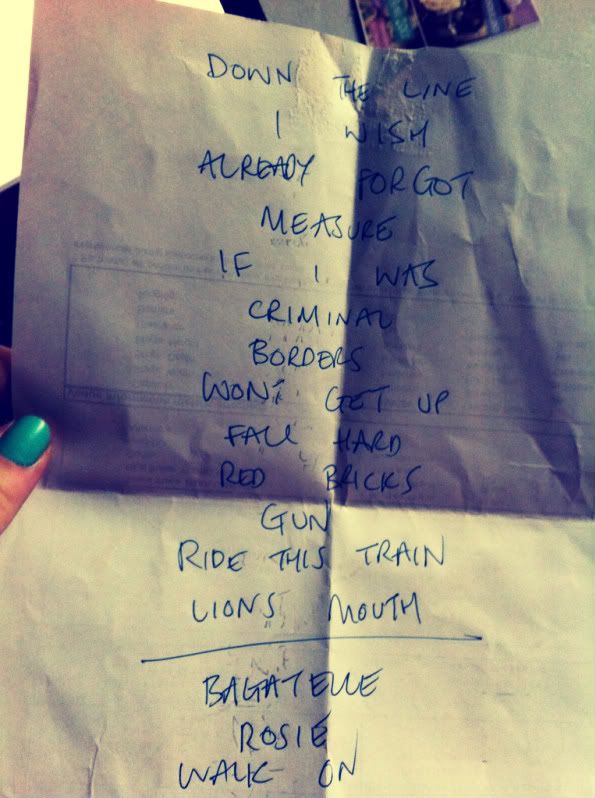 DOWN THE LINE
I WISH
ALREADY FORGOT
MEASURE
IF I WAS
CRIMINAL
BORDERS
WONT GET UP
FALL HARD
RED BRICKS
GUN
RIDE THIS TRAIN
LIONS MOUTH
BAGATELLE
ROSIE
WALK ON